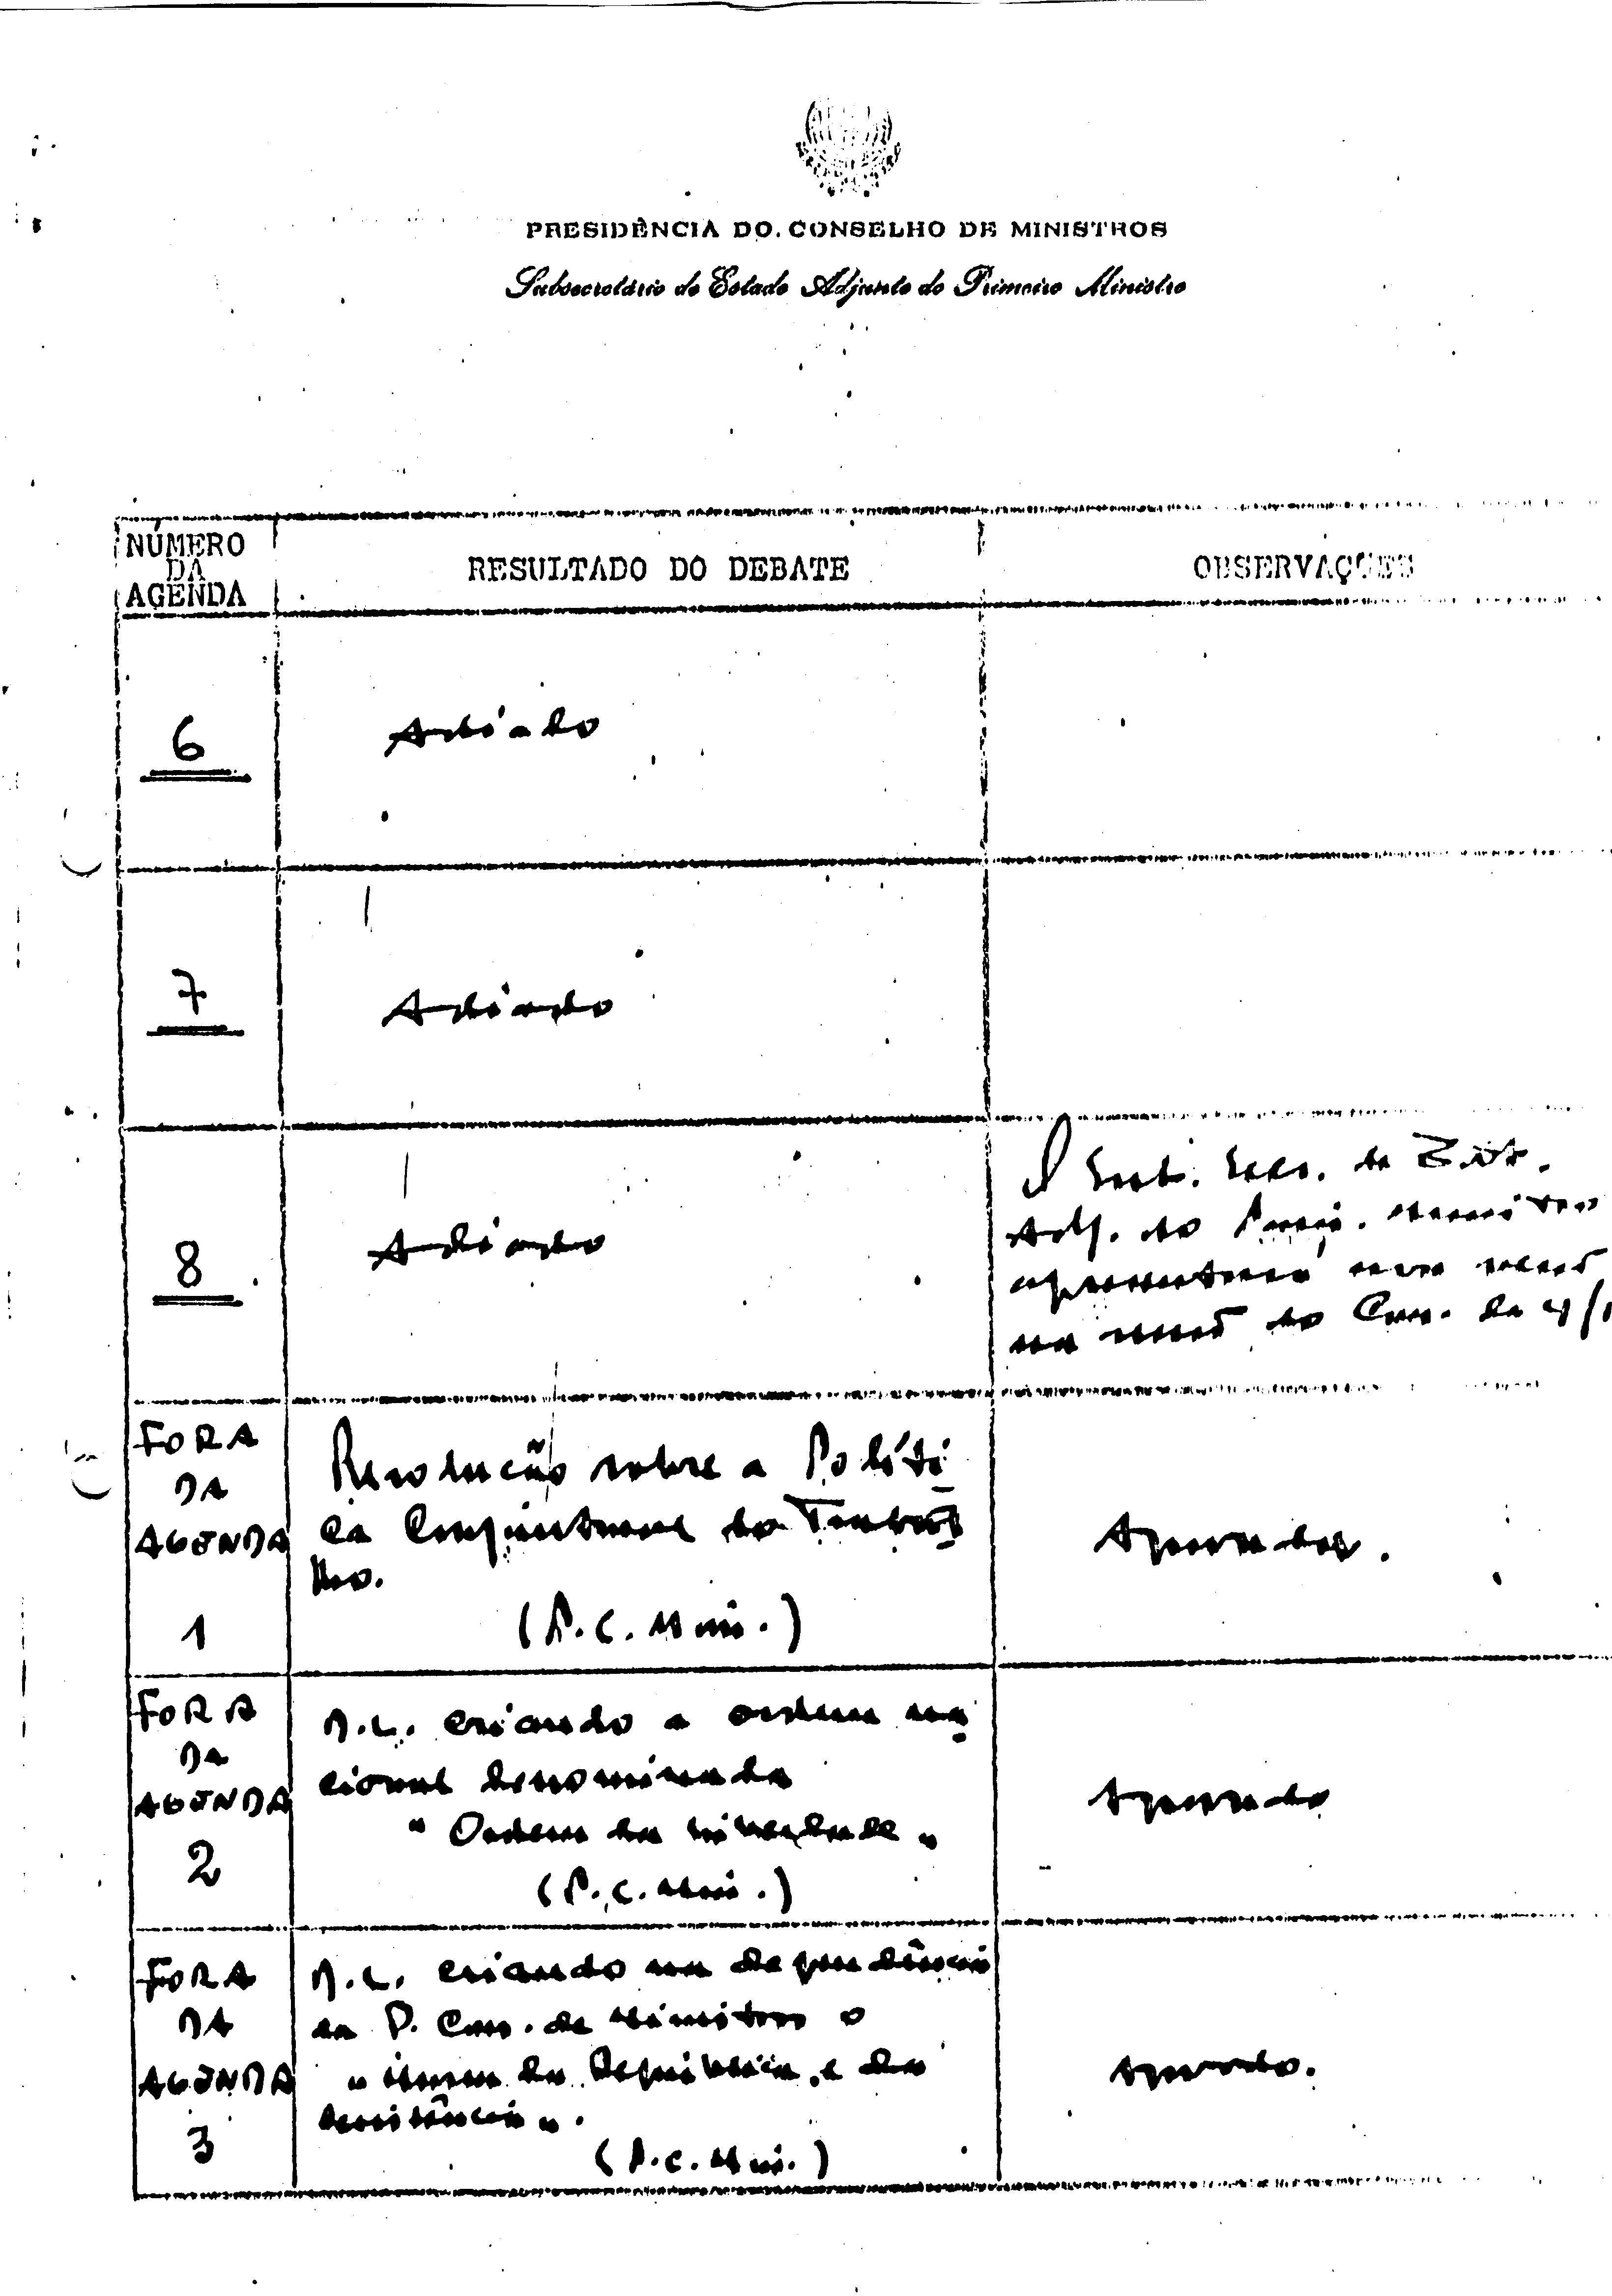 PRESIDÊNCIA DO CONSELHO DE MINISTROS
Subsecretário de Estado Adjunto do Primeiro Ministro
NÚMERO
DA
AGENDA
RESULTADO DO DEBATE
OBSERVAÇÕES
6
Adiado
7
Adiado
8
Adiado
O Sub. Secr. de Est.
Adj. do Prim. Ministro
apresentará
na do Con. de 4/1
FORA
DA
AGENDA
1
Resolução sobre a Políti
ca Conjuntural do Traba
lho.
(P. C. Min.)
Aprovada.
FORA
DA
AGENDA
2
D.L. criando a ordem na
cional denominada
"Ordem da Liberdade"
(P. C. Min.)
Aprovado
FORA
DA
AGENDA
3
D.L. criando na dependência
da P. Con. de Ministros o
"Museu da República e da
Resistência".
(P. C. Min.)
Aprovado.